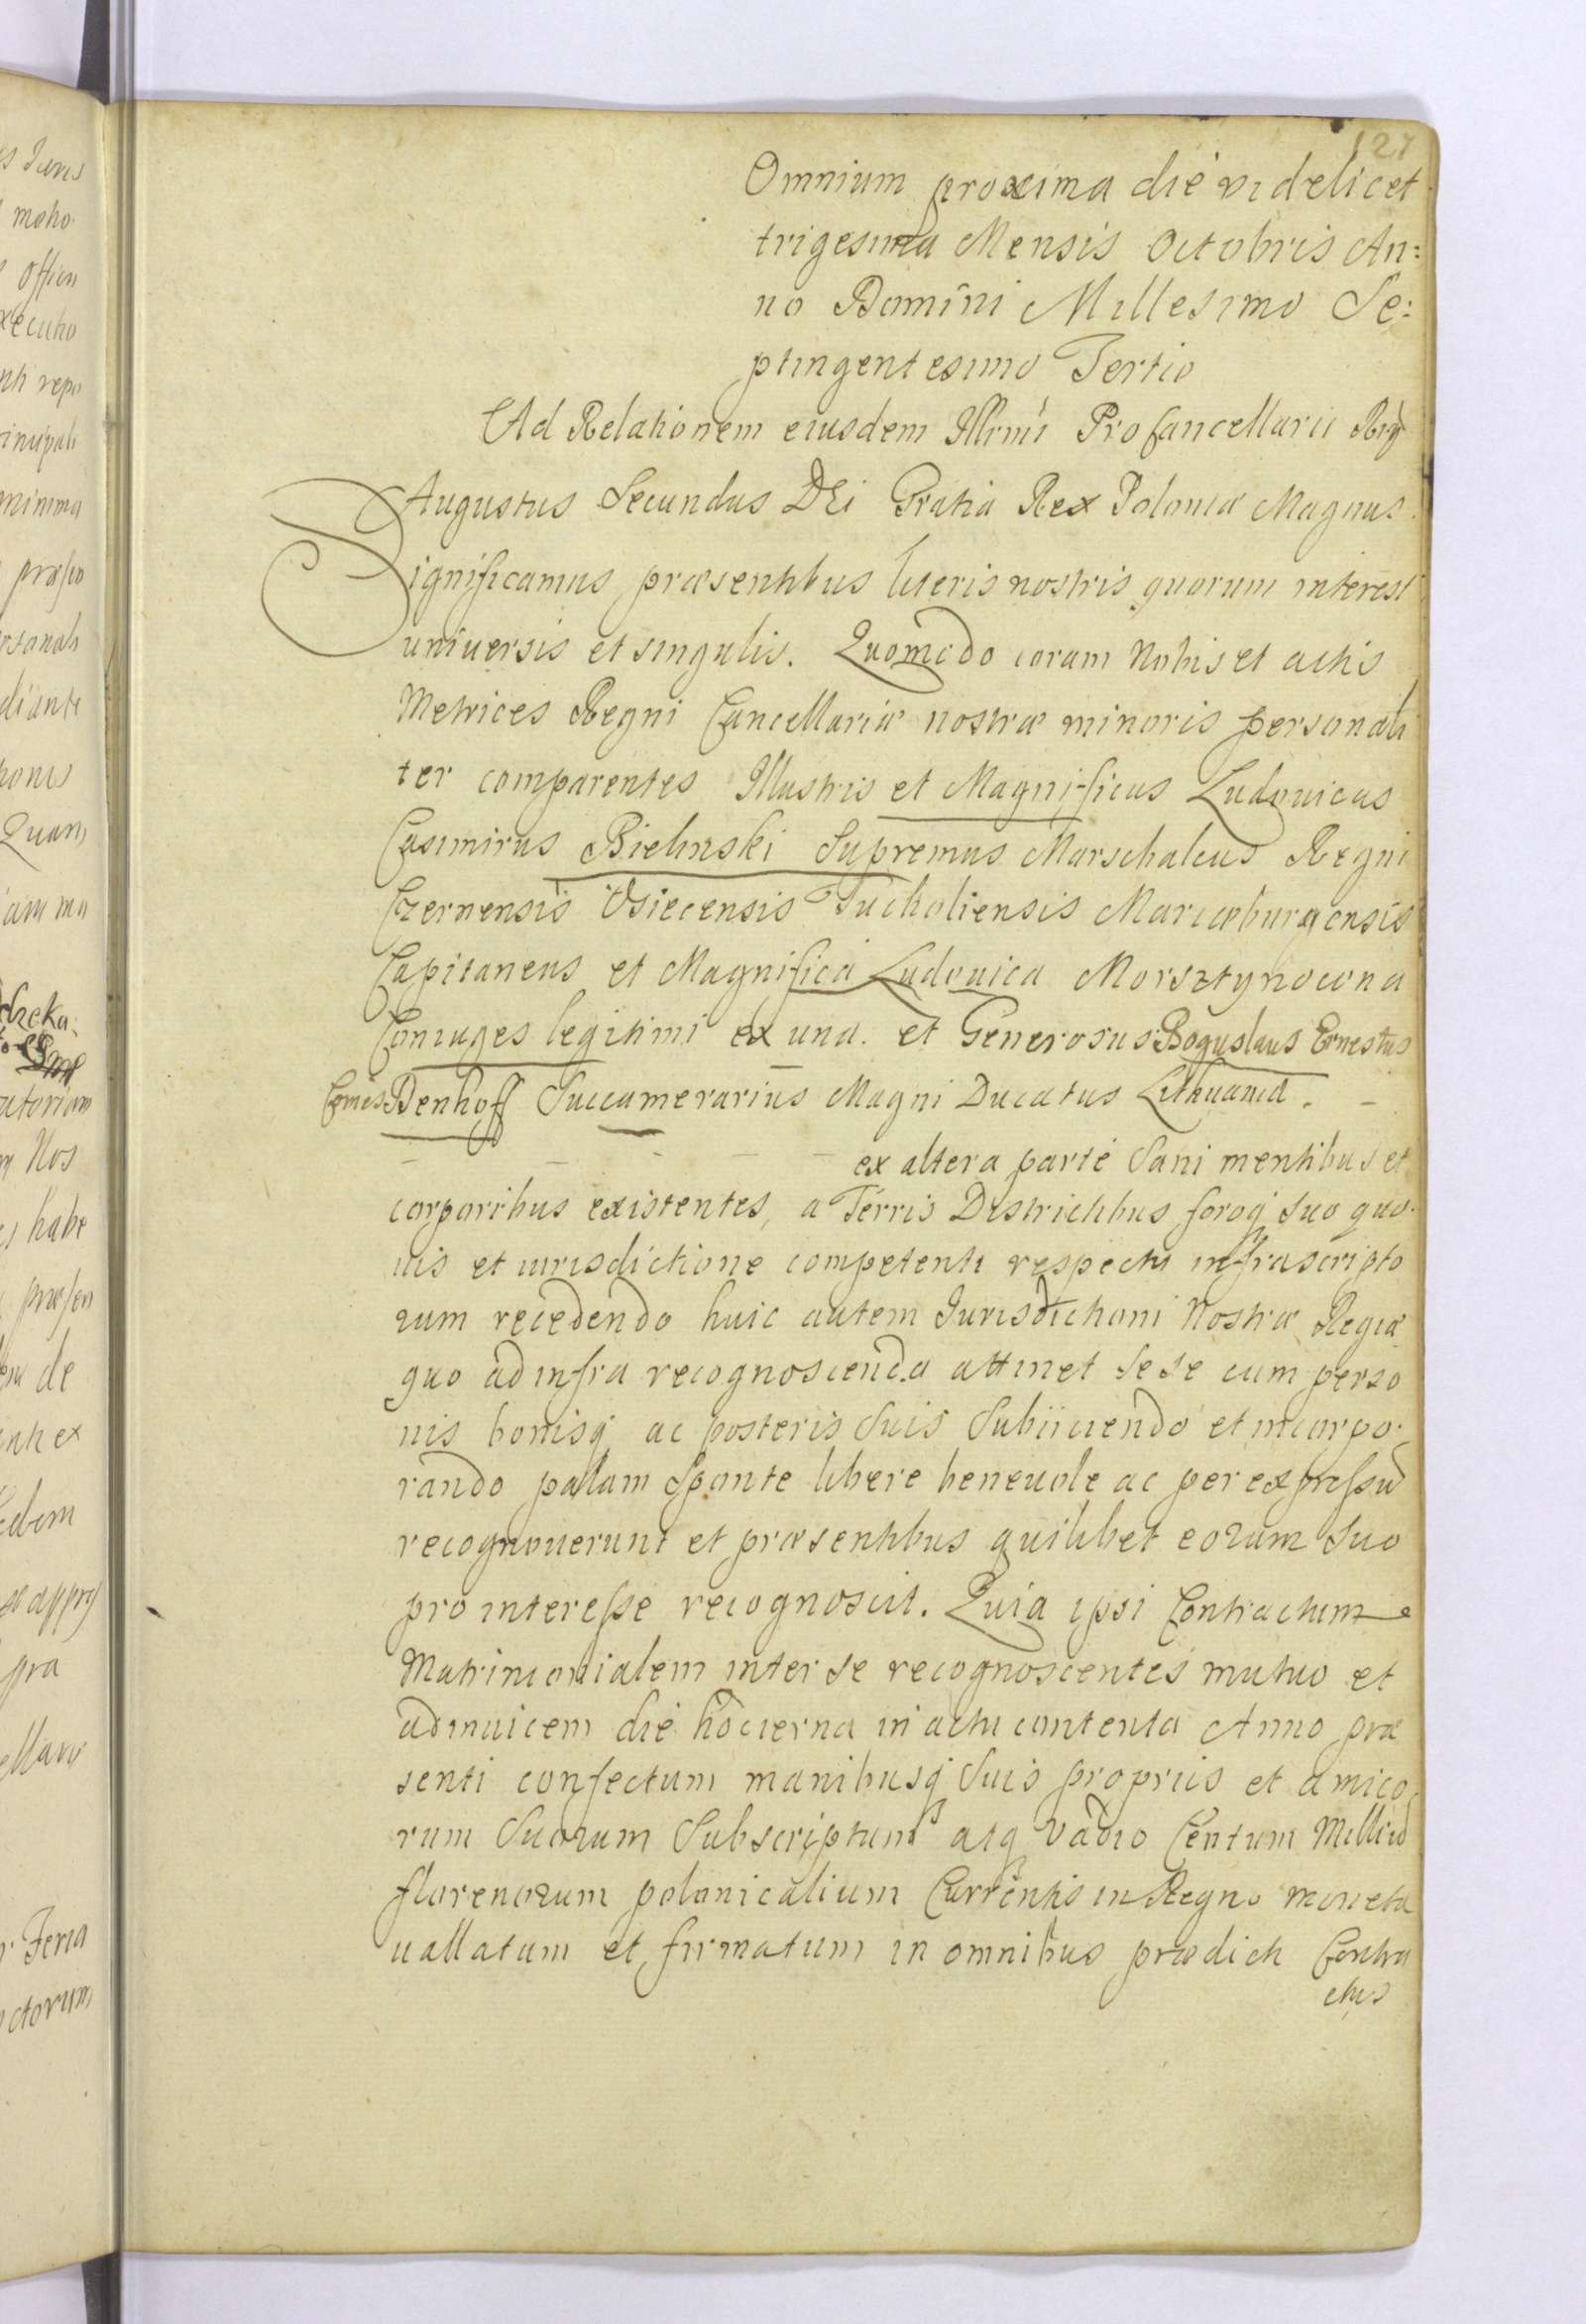 127
Omnium proxima die videlicet
trigesima Mensis Octobris An:
no Domini Millesimo Se:
ptingentesimo Tertio
Ad Relationem eiusdem Illrmi Procancellarii Rg
Augustus Secundus DEi Gratia Rex Poloniæ Magnus
Significamus præsentibus literis nostris quorum interest
universis et singulis. Quomodo coram Nobis et actis
Metrices Regni Cancellariæ nostræ minoris personali
ter comparentes Illustris et Magnificus Ludovicus
Casimirus Bielinski Supremus Marschalcus Regni
Czernensis Osiecensis Tucholiensis Mariæburgensis
Capitaneus et Magnifica Ludovica Morsztynowna
Coniuges legitimi ex una. et Generosus Boguslaus Ernestus
Comes Denhoff Succamerarius Magni Ducatus Lithuaniæ. -
- - - - - ex altera parte Sani mentibus et
corporibus existentes, a Terris Districtibus foroq suo quo
uis et iurisdictione competenti respectu infrascripto
rum recedendo huic autem Jurisdictioni Nostræ Regiæ
quo ad infra recognoscenda attinet sese cum perso
nis bonisq ac posteris Suis Subiiciendo et incorpo
rando palam Sponte libere beneuole ac per expressũ
recognouerunt et præsentibus quilibet eorum Suo
pro interesse recognoscit. Quia ipsi Contractum
Matrimonialem inter se recognoscentes mutuo et
adinuicem die hodierna in actu contenta Anno præ
senti confectum manibusq Suis propriis et amico
rum Suorum Subscriptum atq vadio Centum Milliũ
florenorum polonicalium Currentis in Regno monetæ
uallatum et firmatum in omnibus prædicti Contra
ctus